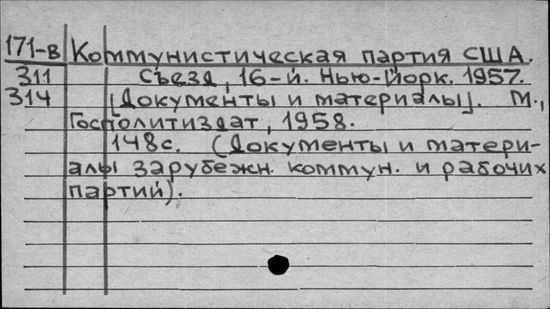 171-в Коммунистическая партия США.
311 Съезд, 16-й. Нью-Йорк. 1957.
314 [Документы и материалы]. М.,
Госполитиздат, 1958.
148с. (Документы и матери-
алы зарубежн. коммун. и рабочих
партий).